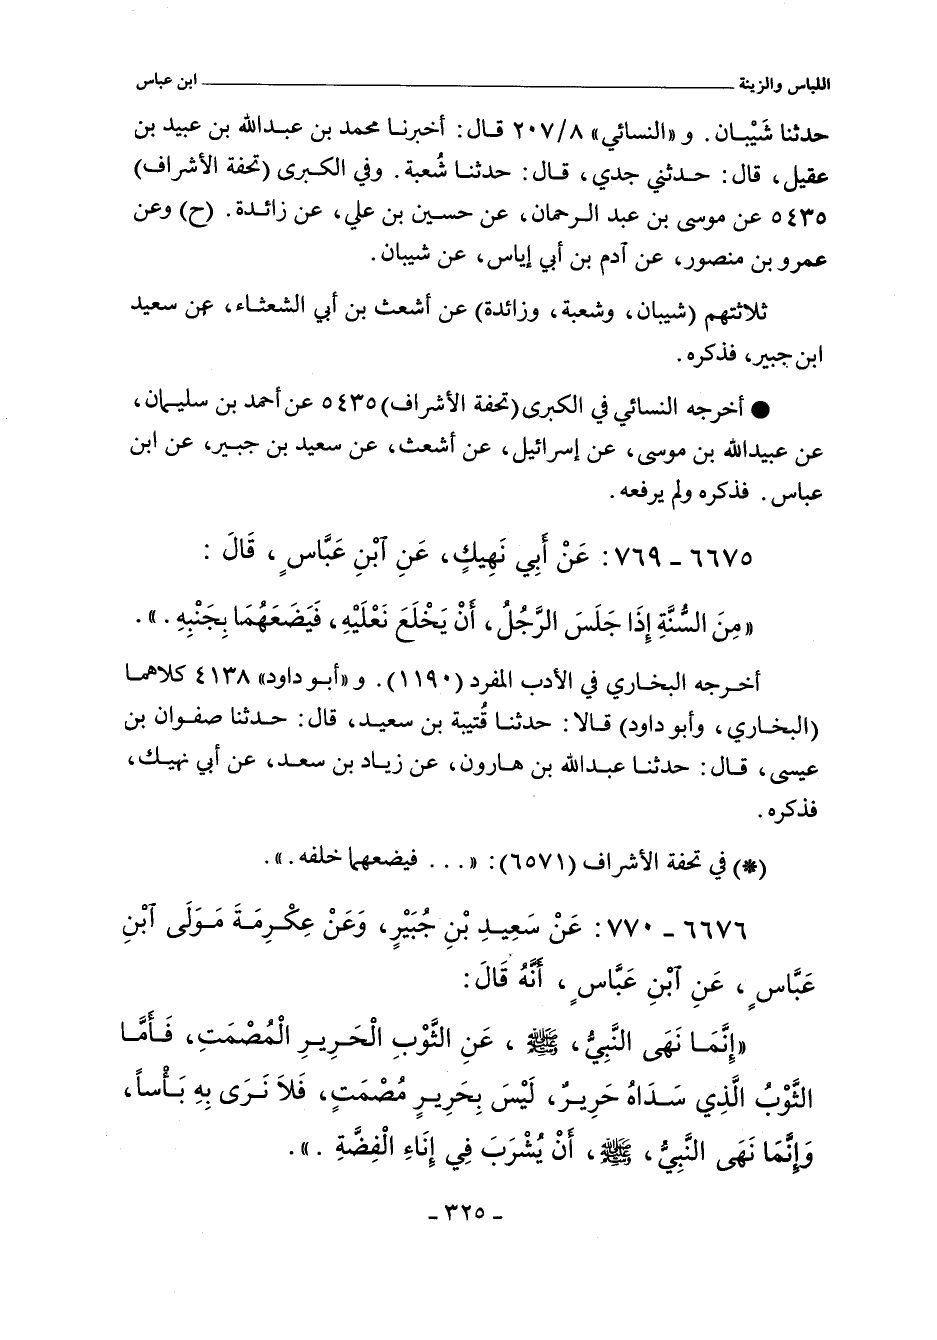 اللباس والزينة ـــــــــــــــــــــــــــــــــــــــــــــــــ ابن عباس
حدثنا شَيْبَان. و «النسائي» ٢٠٧/٨ قال: أخبرنا محمد بن عبدالله بن عبيد بن
عقيل، قال: حدثني جدي، قال: حدثنا شُعبة. وفي الكبرى (تحفة الأشراف)
٥٤٣٥ عن موسى بن عبد الرحمان، عن حسين بن علي، عن زائدة. (ح) وعن
عمرو بن منصور، عن آدم بن أبي إياس، عن شيبان.
ثلاثتهم (شيبان، وشعبة، وزائدة) عن أشعث بن أبي الشعثاء، عن سعيد
ابن جبير، فذكره.
● أخرجه النسائي في الكبرى (تحفة الأشراف) ٥٤٣٥ عن أحمد بن سليمان،
عن عبيدالله بن موسى، عن إسرائيل، عن أشعث، عن سعيد بن جبير، عن ابن
عباس. فذكره ولم يرفعه.
٦٦٧٥ ـ ٧٦٩: عَنْ أَبِي نَهِيكٍ، عَنِ ٱبْنِ عَبَّاسٍ، قَالَ:
«مِنَ السُّنَّةِ إِذَا جَلَسَ الرَّجُلُ، أَنْ يَخْلَعَ نَعْلَيْهِ، فَيَضَعَهُمَا بِجَنْبِهِ.».
أخرجه البخاري في الأدب المفرد (١١٩٠). و «أبو داود» ٤١٣٨ كلاهما
(البخاري، وأبو داود) قالا: حدثنا قُتيبة بن سعيد، قال: حدثنا صفوان بن
عيسى، قال: حدثنا عبدالله بن هارون، عن زياد بن سعد، عن أبي نهيك،
فذكره.
(*) في تحفة الأشراف (٦٥٧١): «... فيضعهما خلفه.».
٦٦٧٦ ـ ٧٧٠: عَنْ سَعِيدِ بْنِ جُبَيْرٍ، وَعَنْ عِكْرِمَةَ مَوْلَى ٱبْنِ
عَبَّاسٍ، عَنِ ٱبْنِ عَبَّاسٍ، أَنَّهُ قَالَ:
«إِنَّمَا نَهَى النَّبِيُّ، ﷺ، عَنِ الثَّوْبِ الْحَرِيرِ الْمُصْمَتِ، فَأَمَّا
الثَّوْبُ الَّذِي سَدَاهُ حَرِيرٌ، لَيْسَ بِحَرِيرٍ مُصْمَتٍ، فَلاَ نَرَى بِهِ بَأْساً،
وَإِنَّمَا نَهَى النَّبِيُّ، ﷺ، أَنْ يُشْرَبَ فِي إِنَاءِ الْفِضَّةِ.».
ـ ٣٢٥ ـ